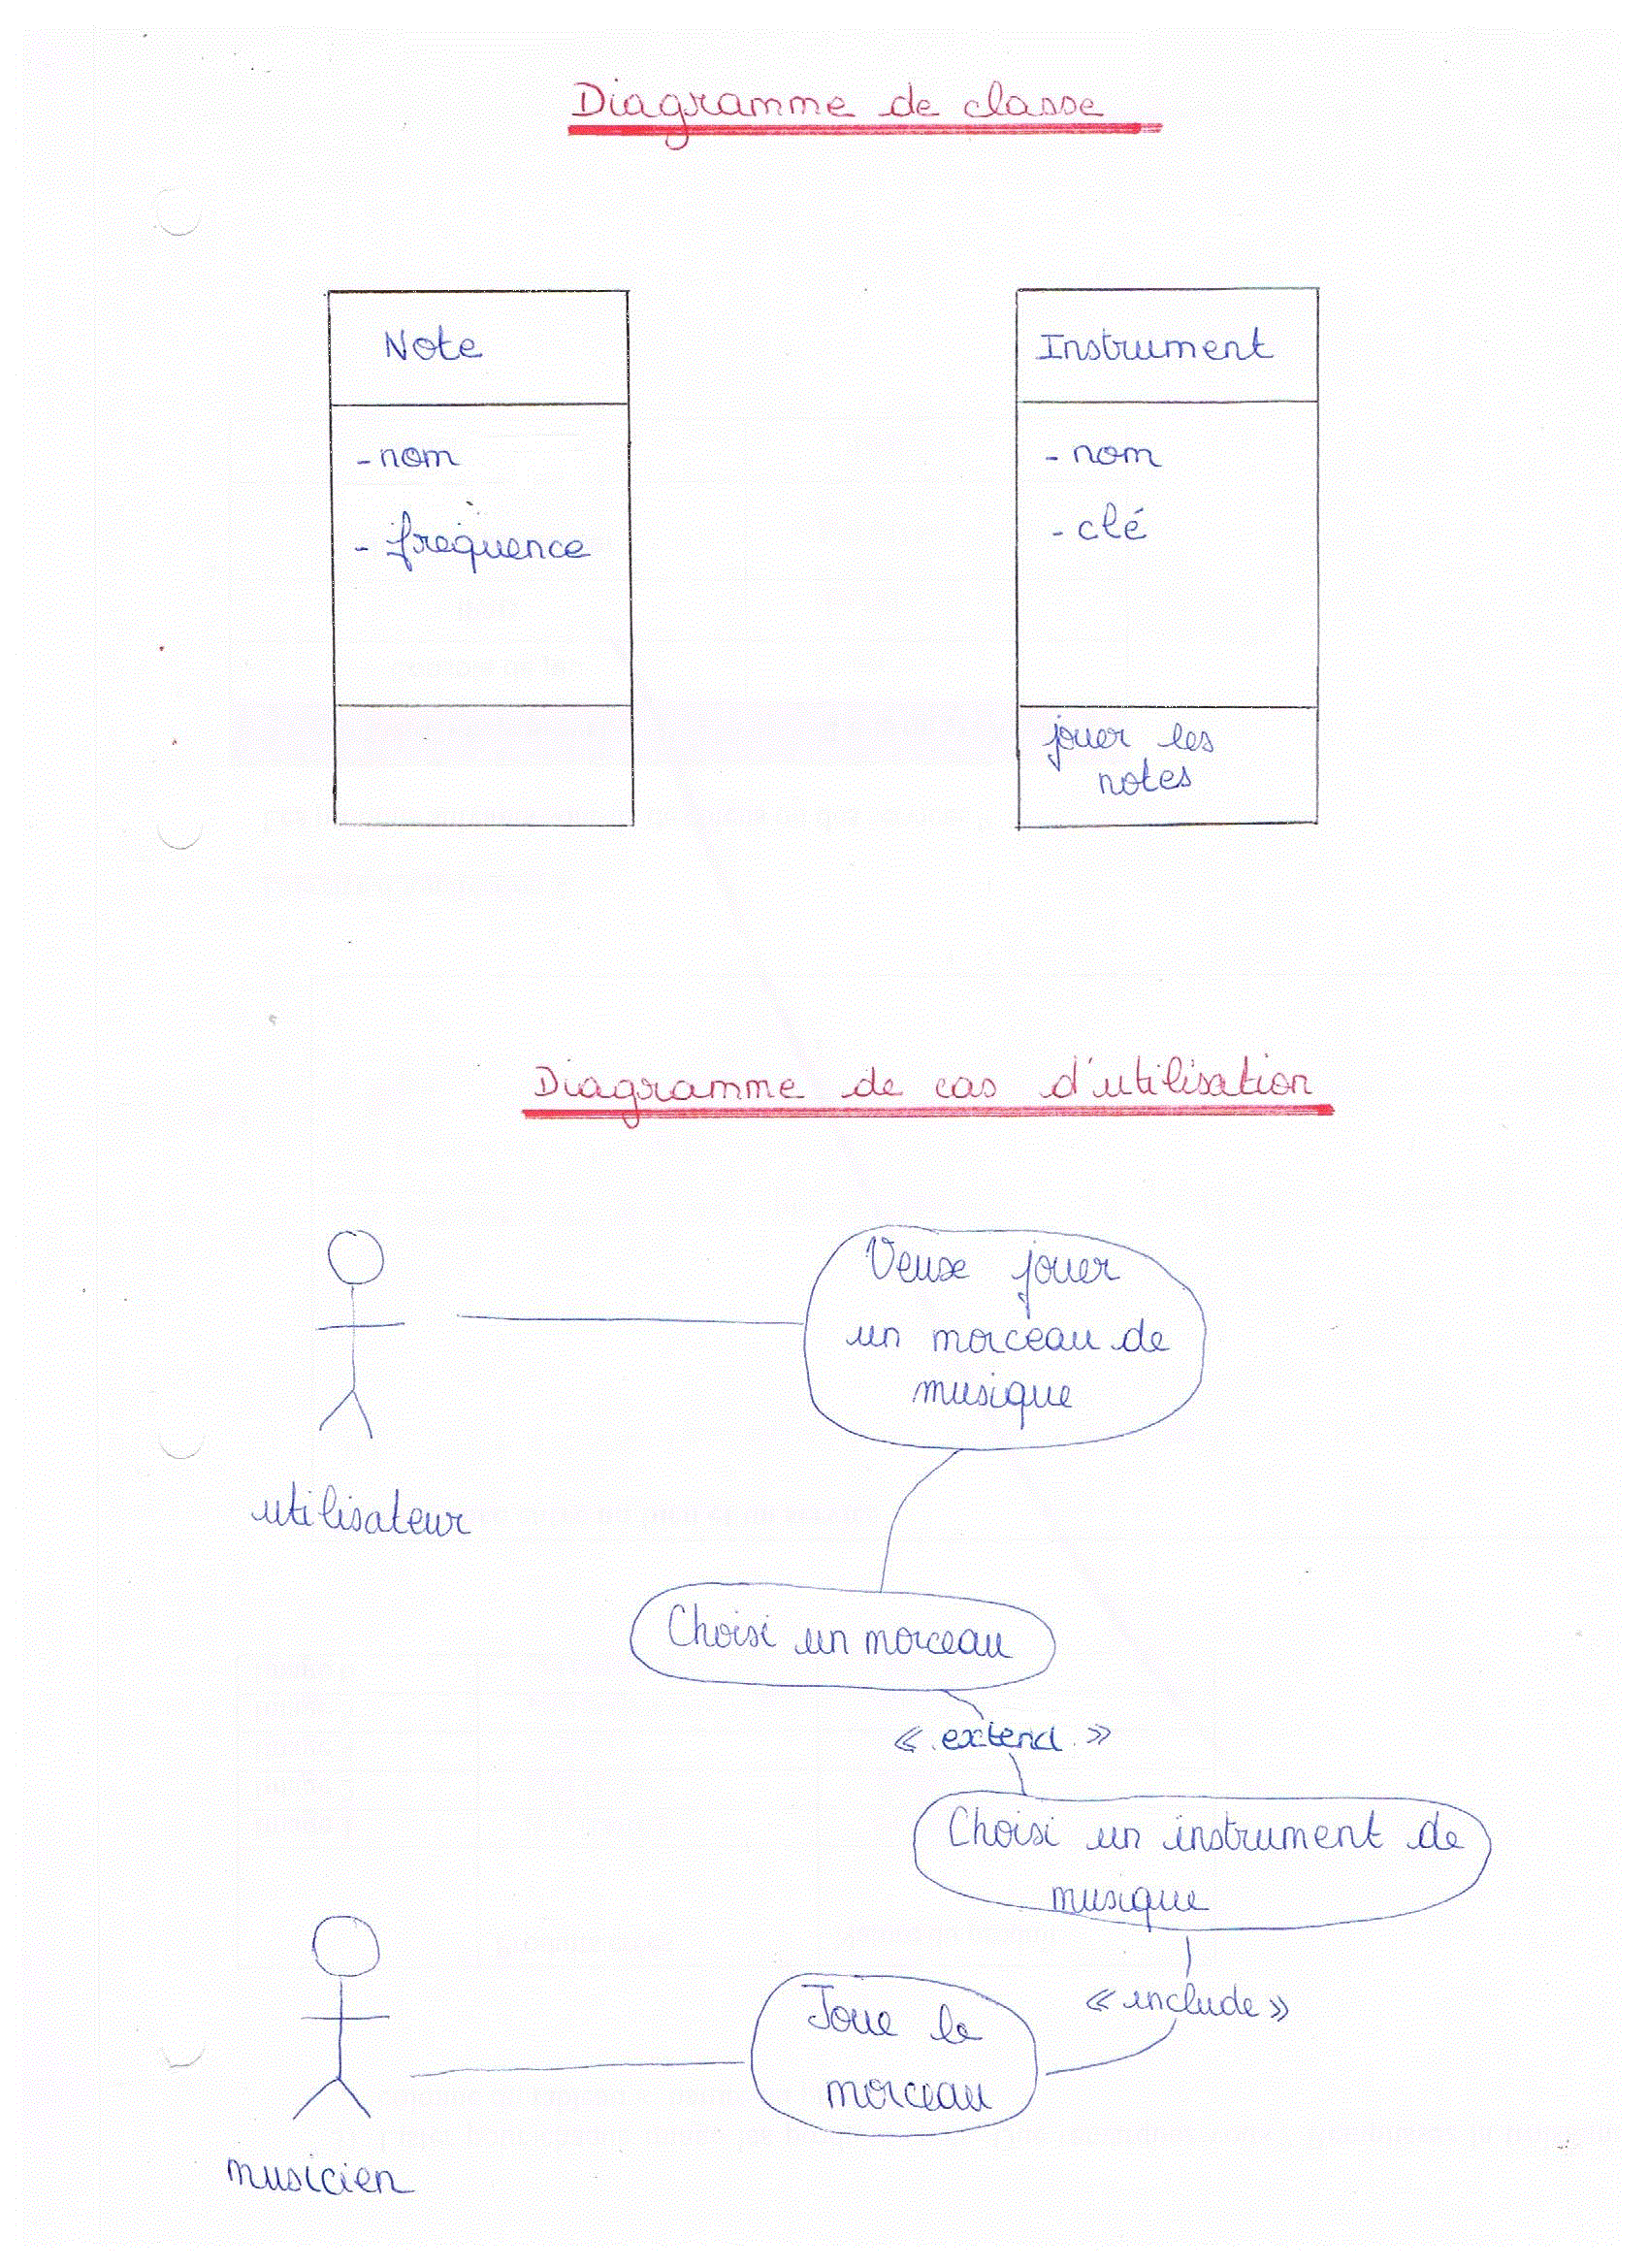 Diagramme de classe
Note
- nom
- frequence
Instrument
- nom
- clé
jouer les
notes
Diagramme de cas d'utilisation
utilisateur
Veux jouer
un morceau de
musique
Choisi un morceau
« extend »
Choisi un instrument de
musique
« include »
Joue le
morceau
musicien